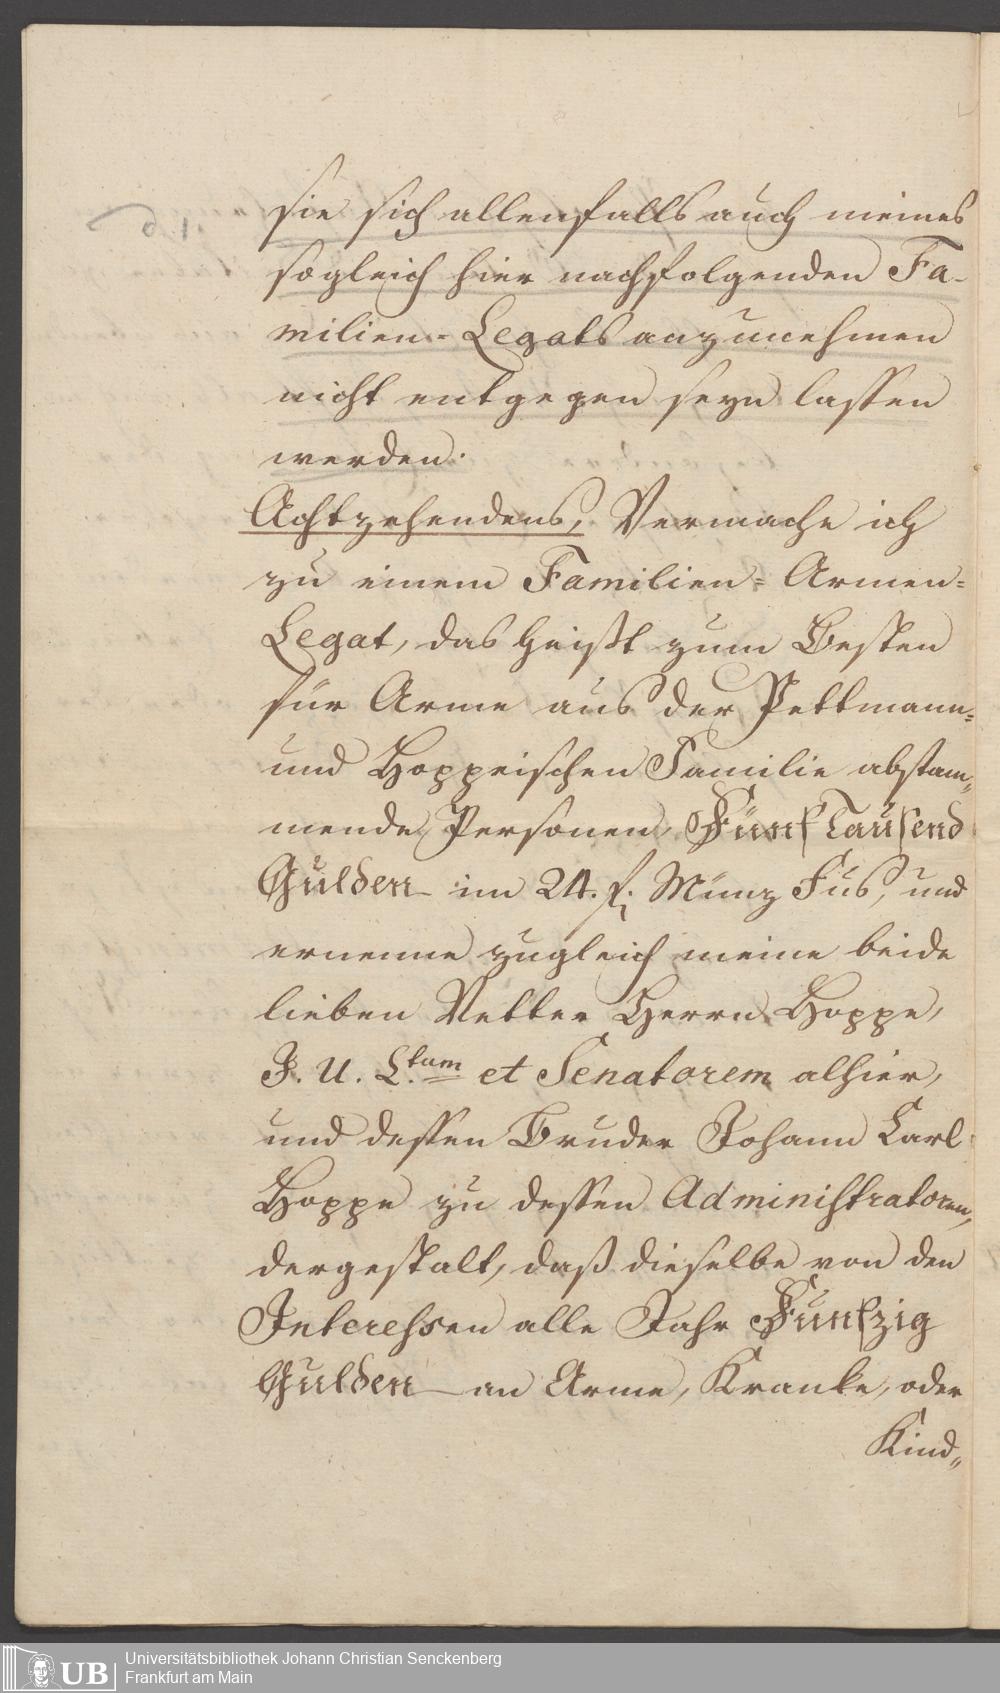 sie sich allenfalls auch meines
sogleich hier nachfolgenden Fa-
milien-Legats anzunehmen
nicht entgegen seyn lassen
werden.
Achtzehendens, Vermache ich
zu einem Familien-Armen-
Legat, das heißt zum Besten
für Arme aus der Pettmann-
und Hoppeischen Familie abstam„
mende Personen, Fünf Tausend
Gulden im 24. f. Münz Fus, und
ernenne zugleich meine beide
lieben Vetter Herrn Hoppe,
J. U. L.tum et Senatorem alhier,
und dessen Bruder Johann Carl
Hoppe zu dessen Administratoren,
dergestalt, daß dieselbe von den
Interessen alle Jahr Funfzig
Gulden an Arme, Kranke, oder
Kind„
UB Universitätsbibliothek Johann Christian Senckenberg
Frankfurt am Main